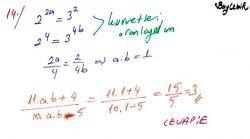 BoyLewis
14./ 2^{2a} = 3^2
2^4 = 3^{4b}
kuvvetleri
oranlayalım
2a/4 = 2/4b ⇒ a.b = 1
(11.a.b + 4)/(10.a.b - 5) = (11.1 + 4)/(10.1 - 5) = 15/5 = 3//
CEVAP